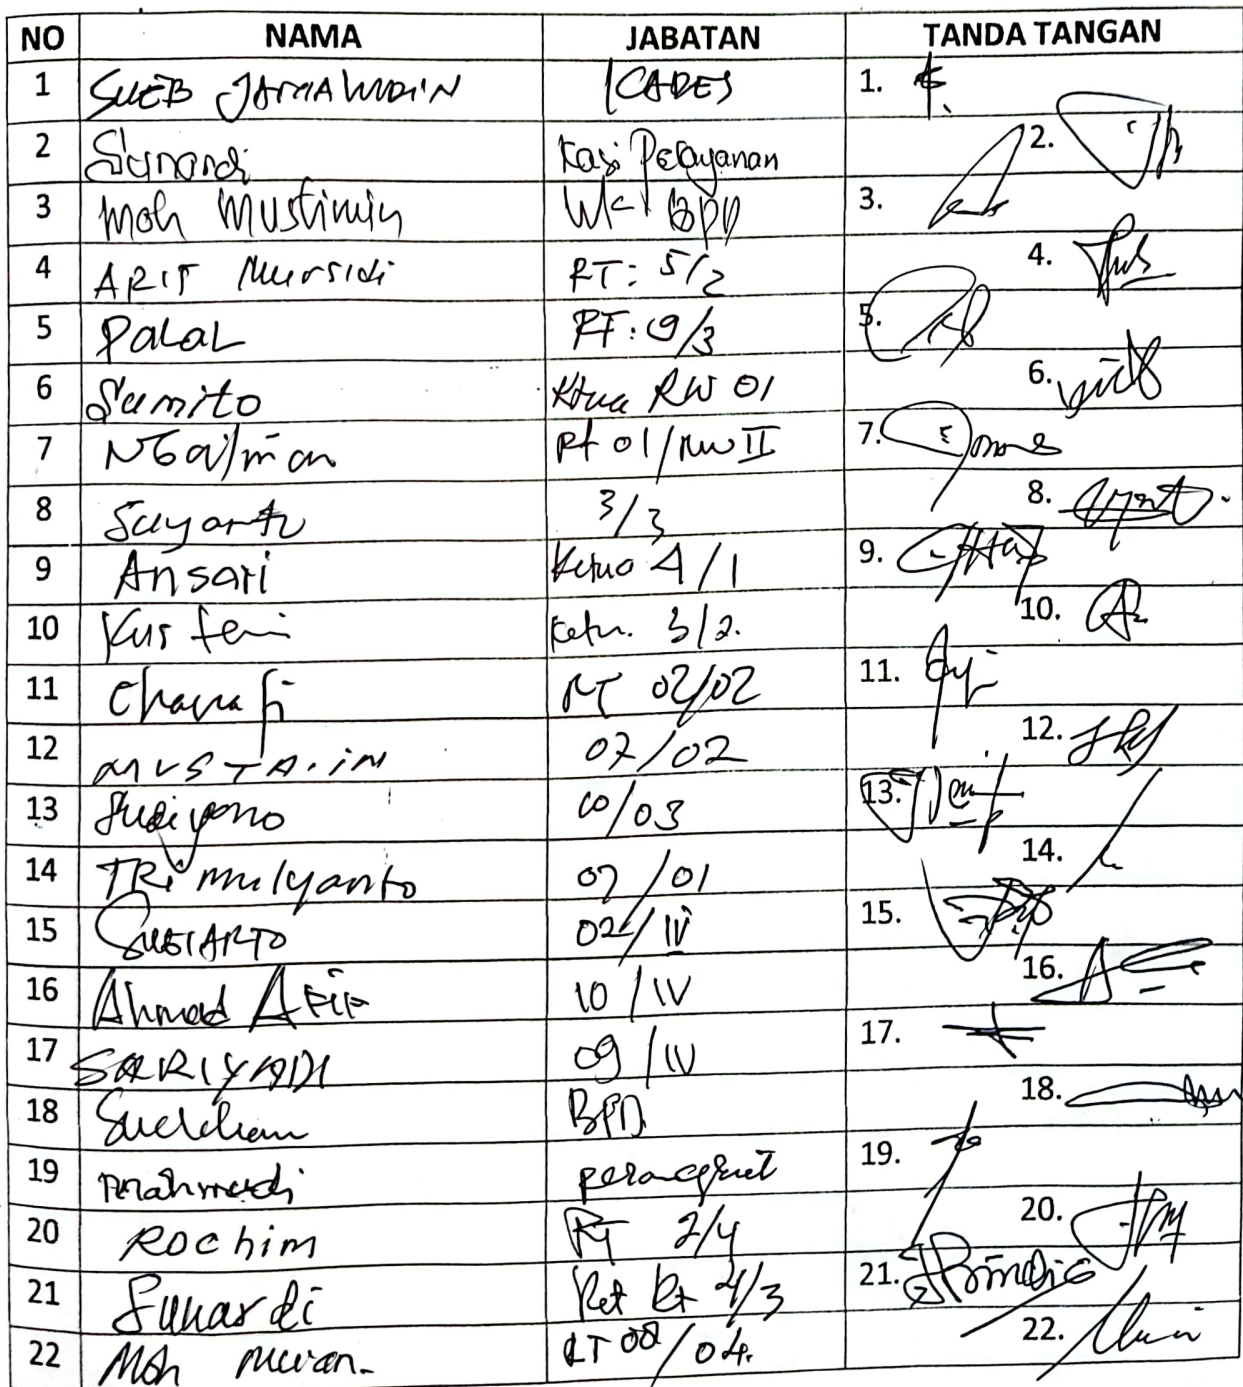 NO NAMA JABATAN TANDA TANGAN
1 SUEB JAMALUDIN KADES 1.
2 Sunardi Kasi Pelayanan 2.
3 Moh Mustimin Wk BPD 3.
4 ARIF Mursidi RT: 5/2 4.
5 PaLaL RT: 9/3 5.
6 Sumito Ketua RW 01 6.
7 NGaiman Rt 01/RW II 7.
8 Suyanto 3/3 8.
9 Ansari Ketua 4/1 9.
10 Kusteni Ketu. 3/2. 10.
11 Chanafi RT 02/02 11.
12 MUSTA.iN 07/02 12.
13 Sugiyono 10/03 13.
14 TRi mulyanto 07/01 14.
15 SUGIARTO 02/IV 15.
16 Ahmad AFiF 10/IV 16.
17 SARIYADI 09/IV 17.
18 BPD 18.
19 mahmudi perangkat 19.
20 Rochim RT 2/4 20.
21 Sunardi Ket Rt 4/3 21.
22 Moh RT 08/04. 22.